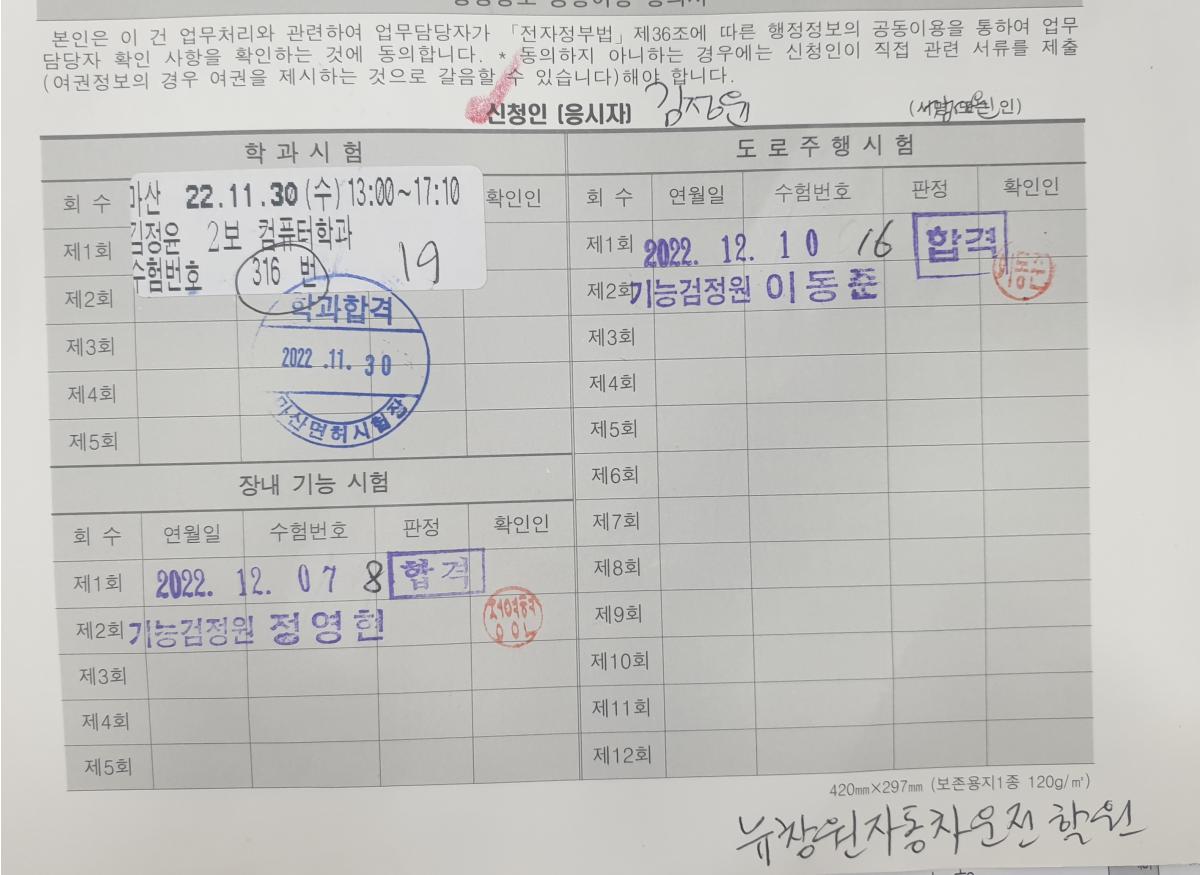 본인은 이 건 업무처리와 관련하여 업무담당자가 「전자정부법」 제36조에 따른 행정정보의 공동이용을 통하여 업무
담당자 확인 사항을 확인하는 것에 동의합니다. * 동의하지 아니하는 경우에는 신청인이 직접 관련 서류를 제출
(여권정보의 경우 여권을 제시하는 것으로 갈음할 수 있습니다)해야 합니다.
신청인 (응시자) 김정윤 인)
학 과 시 험
회 수 확인인
마산 22.11.30(수)13:00~17:10
김정윤 2보 컴퓨터학과
수험번호 316 번 19
제1회
제2회
학과합격
제3회
2022 .11. 30
제4회
마산면허시험장
제5회
장내 기능 시험
회 수 연월일 수험번호 판정 확인인
제1회 2022. 12. 07 8 합격
제2회 기능검정원 정영헌
제3회
제4회
제5회
도 로 주 행 시 험
회 수 연월일 수험번호 판정 확인인
제1회 2022. 12. 10 16 합격
제2회 기능검정원 이동준
이동준
제3회
제4회
제5회
제6회
제7회
제8회
제9회
제10회
제11회
제12회
420㎜×297㎜ (보존용지1종 120g/㎡)
뉴창원자동차운전학원